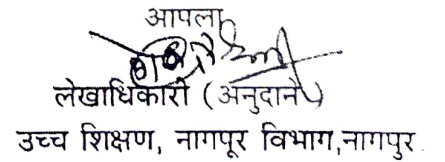 आपला
लेखाधिकारी (अनुदाने)
उच्च शिक्षण, नागपूर विभाग,नागपूर